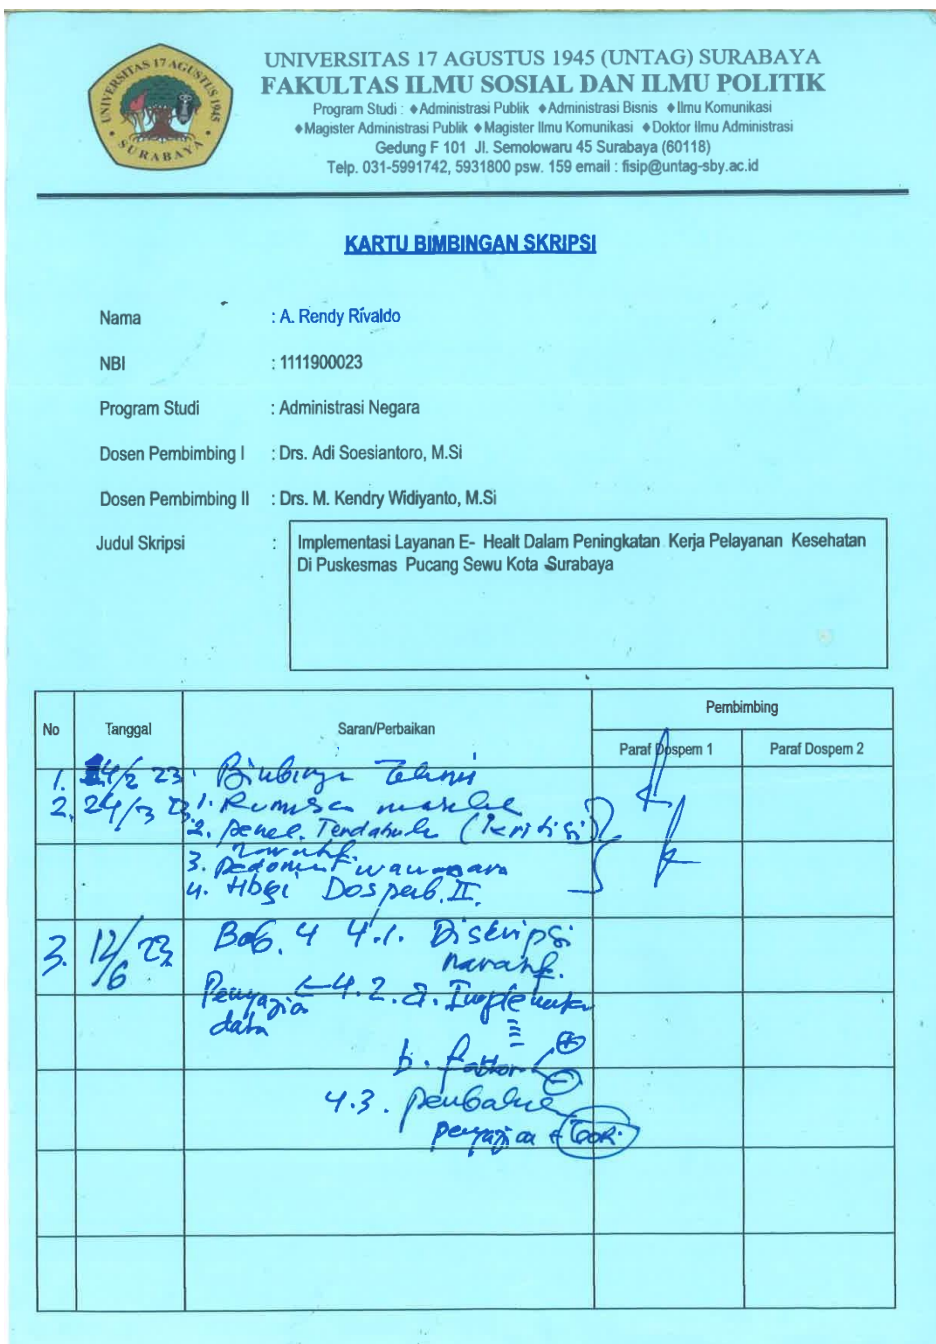 UNIVERSITAS 17 AGUSTUS 1945
SURABAYA
UNIVERSITAS 17 AGUSTUS 1945 (UNTAG) SURABAYA
FAKULTAS ILMU SOSIAL DAN ILMU POLITIK
Program Studi : ♦Administrasi Publik ♦Administrasi Bisnis ♦Ilmu Komunikasi
♦Magister Administrasi Publik ♦Magister Ilmu Komunikasi ♦Doktor Ilmu Administrasi
Gedung F 101 Jl. Semolowaru 45 Surabaya (60118)
Telp. 031-5991742, 5931800 psw. 159 email : fisip@untag-sby.ac.id
KARTU BIMBINGAN SKRIPSI
Nama : A. Rendy Rivaldo
NBI : 1111900023
Program Studi : Administrasi Negara
Dosen Pembimbing I : Drs. Adi Soesiantoro, M.Si
Dosen Pembimbing II : Drs. M. Kendry Widiyanto, M.Si
Judul Skripsi : Implementasi Layanan E- Healt Dalam Peningkatan Kerja Pelayanan Kesehatan
Di Puskesmas Pucang Sewu Kota Surabaya
No Tanggal Saran/Perbaikan Pembimbing
Paraf Dospem 1 Paraf Dospem 2
1. /2 23
2. 24/3 23 1.
2. Penel. Terdahulu (kritisi)
3.
4. Dospemb. II.
3. 12/6 23 Bab. 4 4.1. Diskripsi
naratif.
4.2. a.
data
b. faktor + -
4.3.